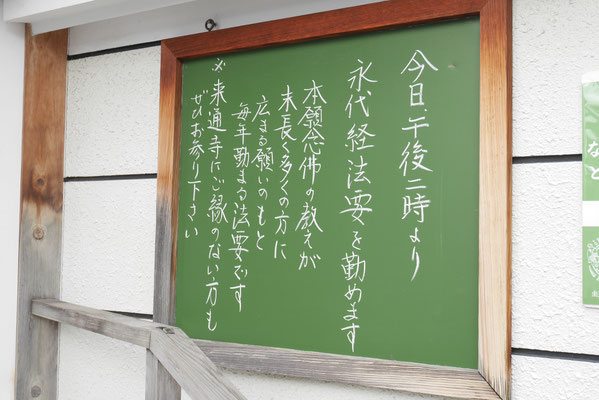 今日、午後二時より
永代経法要を勤めます
本願念佛の教えが
末長く多くの方に
広まる願いのもと
毎年勤まる法要です
※来通寺にご縁のない方も
ぜひお参り下さい
など